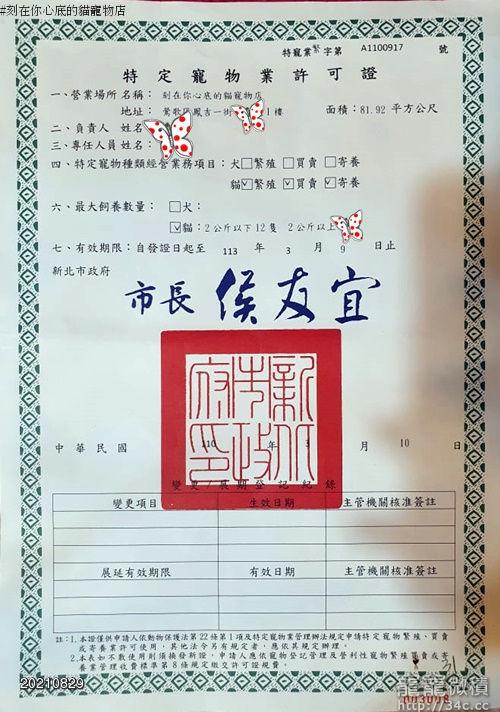 #刻在你心底的貓寵物店
特寵業繁字第 A1100917 號
特定寵物業許可證
一、營業場所名稱：刻在你心底的貓寵物店
地址：鶯歌區鳳吉一街 1樓 面積：81.92 平方公尺
二、負責人 姓名
三、專任人員 姓名：
四、特定寵物種類經營業務項目：犬□繁殖 □買賣 □寄養
貓☑繁殖 ☑買賣 ☑寄養
六、最大飼養數量：□犬：
☑貓：2公斤以下12隻 2公斤以上
七、有效期限：自發證日起至 113 年 3 月 9 日止
新北市政府
市長 侯友宜
新北市政府印
中華民國 110 年 3 月 10 日
變更/展期登記紀錄
變更項目 生效日期 主管機關核准簽註
展延有效期限 有效日期 主管機關核准簽註
註：1.本證僅供申請人依動物保護法第22條第1項及特定寵物業管理辦法規定申請特定寵物繁殖、買賣
或寄養業許可使用，其他法令另有規定者，應依其規定辦理。
2.本表如不敷使用則須換發新證，申請人應依寵物登記管理及營利性寵物繁殖買賣或寄
養業管理收費標準第8條規定繳交許可證規費。
20210829
龍龍微積
http://34c.cc